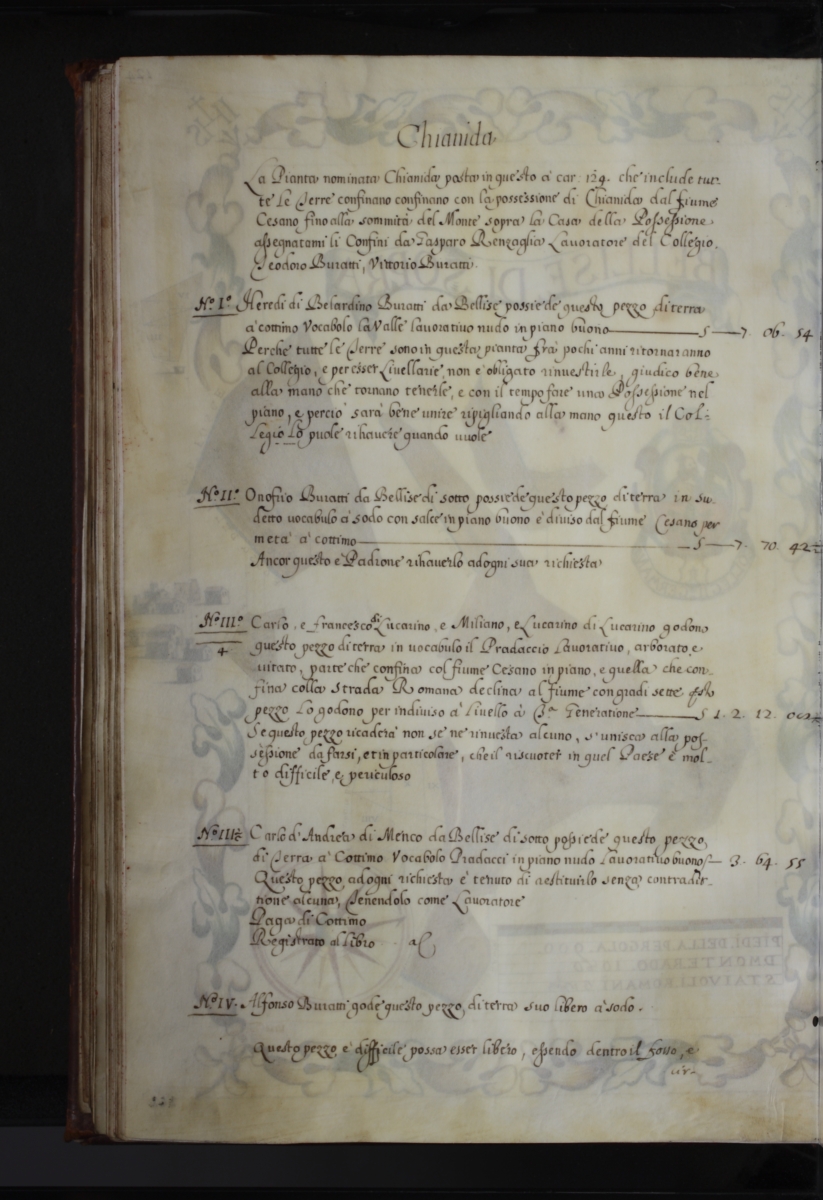 Chianida
La Pianta nominata Chianida posta in questo à car: 129. che include tut-
te le Terre confinano confinano con la possessione di Chianida dal fiume
Cesano fino alla sommità del Monte sopra la Casa della Possessione
assegnatomi li Confini da Gasparo Renzaglia Lavoratore del Collegio.
Teodoro Buratti, Vittorio Buratti.
N.º I.º Heredi di Belardino Buratti da Bellise possiede questo pezzo di terra
à cottimo vocabolo la Valle lavorativo nudo in piano buono S 7. 06. 54
Perche tutte le Terre sono in questa pianta frà pochi anni ritornaranno
al Collegio, e per esser Livellarie non è obligato rinvestirle, giudico bene
alla mano che tornano tenerle, e con il tempo fare una Possessione nel
piano, e perciò sarà bene unire ripigliando alla mano questo il Col-
legio Lo puole rihavere quando vuole
N.º II.º Onofrio Buratti da Bellise di sotto possiede questo pezzo di terra in su-
detto vocabulo à sodo con salce in piano buono è diviso dal fiume Cesano per
metà à cottimo S 7. 70. 42
Ancor questo è Padrone rihaverlo ad ogni sua richiesta
N.º III.º Carlo, e Francesco di Lucarino, e Miliano, e Lucarino di Lucarino godono
4 questo pezzo di terra in vocabulo il Pradaccio Lavorativo, arborato, e
vitato, parte che confina col fiume Cesano in piano, e quella che con-
fina colla Strada Romana declina al fiume con gradi sette
pezzo Lo godono per indiviso à livello à 3.ª Generatione S 1. 2. 12.
Se questo pezzo ricaderà non se ne investa alcuno, s'unisca alla pos-
sessione da farsi, et in particolare, che il riscuoter in quel Paese è mol-
to difficile, e pericoloso
N.º III Carlo d'Andrea di Menco da Bellise di sotto possiede questo pezzo
di Terra à Cottimo Vocabolo Pradacci in piano nudo Lavorativo buono S 3. 64. 55
Questo pezzo ad ogni richiesta è tenuto di restituirlo senza contradit-
tione alcuna, Tenendolo come Lavoratore
Paga di Cottimo
Registrato al libro
N.º IV. Alfonso Buratti gode questo pezzo di terra suo libero à sodo.
Questo pezzo è difficile possa esser libero, essendo dentro il fosso, e